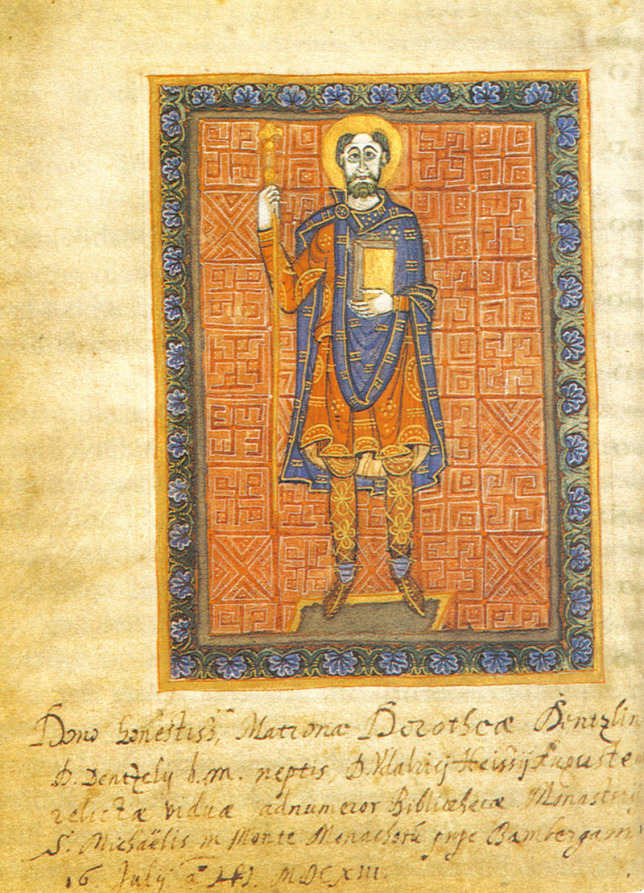 Dono honestiss. Matronae Dorotheae Dentzlin
D. Dentzely b.m. neptis, D. Vdalrici
relictae viduae adnumeror Bibliothecae Monasterij
S. Michaëlis in Monte Monachorū prope Bambergam
16 July MDCXIII.